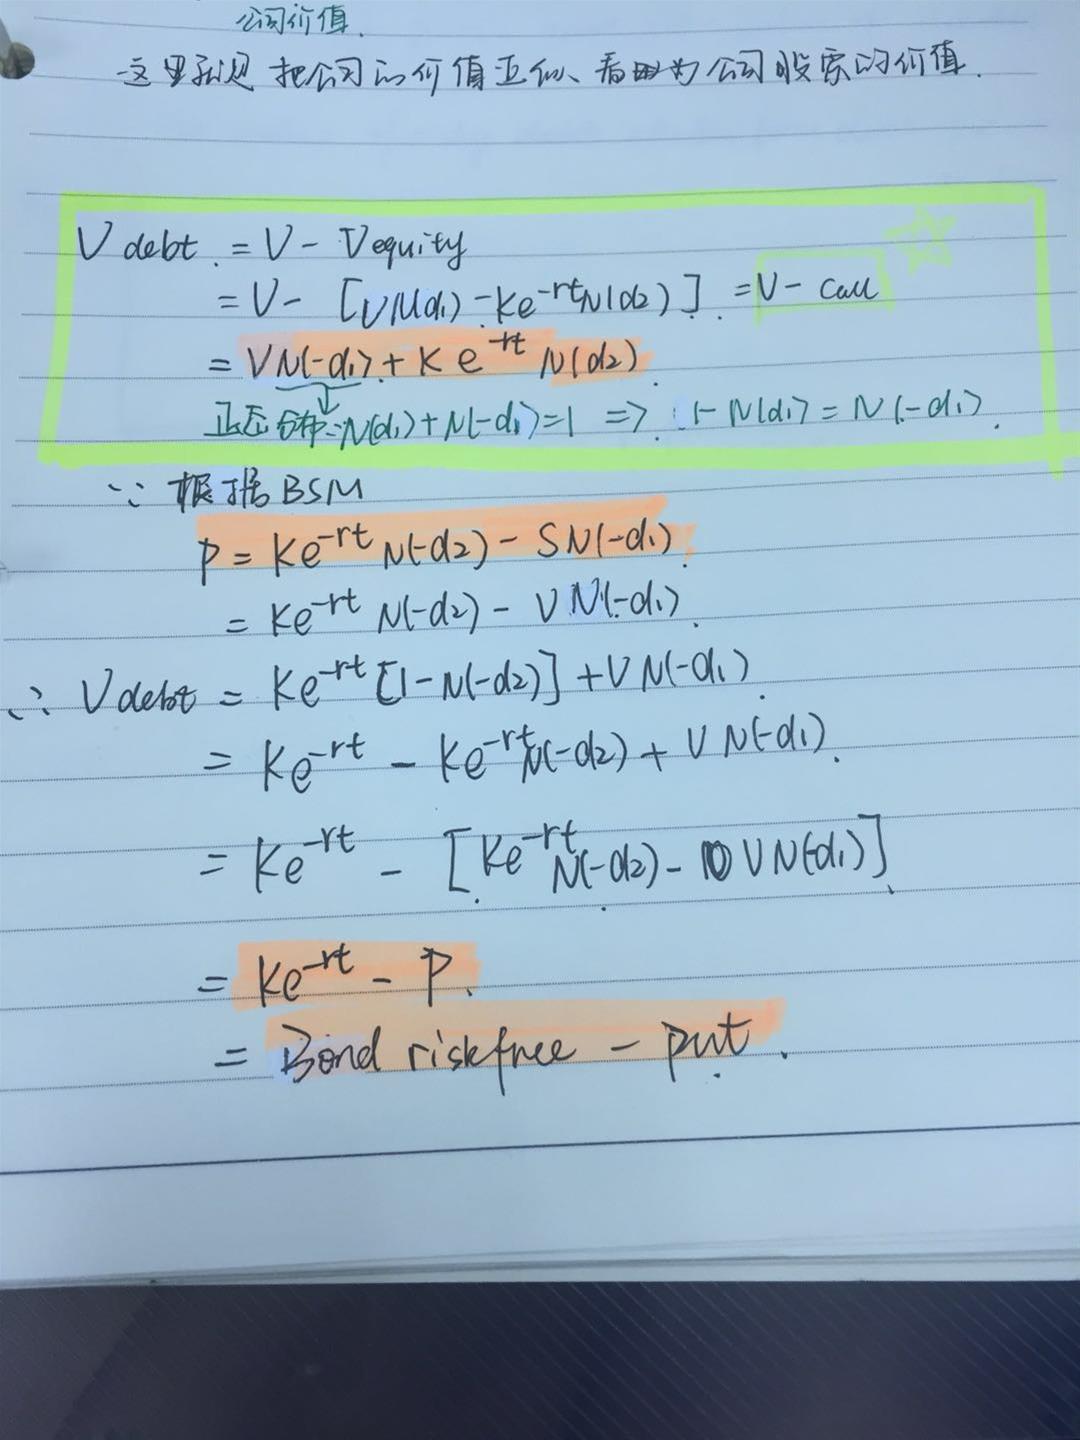 公司价值.
这里就是把公司的价值近似、看为公司股票的价值.
V debt. = V - Vequity
= V - [VN(d₁) - Ke^-rt N(d₂)] = V - call
= VN(-d₁) + Ke^-rt N(d₂).
正态分布:N(d₁)+N(-d₁)=1 => 1-N(d₁) = N(-d₁).
∵ 根据BSM
P = Ke^-rt N(-d₂) - SN(-d₁).
= Ke^-rt N(-d₂) - VN(-d₁).
∴ Vdebt = Ke^-rt [1-N(-d₂)] + VN(-d₁).
= Ke^-rt - Ke^-rt N(-d₂) + VN(-d₁).
= Ke^-rt - [Ke^-rt N(-d₂) - VN(-d₁)]
= Ke^-rt - P.
= Bond riskfree - put.